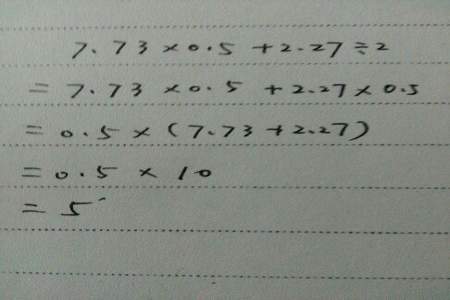 7.73×0.5+2.27÷2
=7.73×0.5+2.27×0.5
=0.5×(7.73+2.27)
=0.5×10
=5